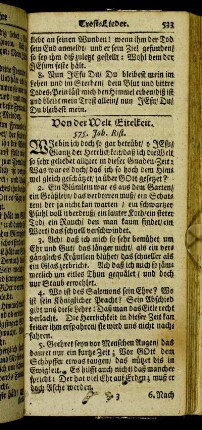 Trost-Lieder. 533
lebt an seiner Wunden! wenn ihm der Tod
sein End anmeldt, und er sein Ziel gefunden,
so sey ihm diß zuletzt gestellt: Wohl dem der
JEsum feste hält.
8. Nun JEsu Du! Du bleibest mein im
Leben und im Sterben; dein Blut und bitter
Todes-Pein läst mich den Himmel erben: diß ist
und bleibt mein Trost allein/ nun JEsu/ Du/
Du bleibest mein.
Von der Welt Eitelkeit.
575. Joh. Rist.
bin ich doch so gar betrübt/ o JEsu/
Glantz der Herrlichkeit, daß ich die Welt
so sehr geliebet allhier in dieser Gnaden-Zeit:
Was war es doch, daß ich so hoch dem Him-
mel gleich geschätzet/ ja über GOtt gesetzt?
2. Ein Blümlein war es aus dem Garten/
ein Gräßlein auf dem Felde, ein schwartzer
Pfuhl voll
Tod, ein Rauch/ den man kaum findet/ ein
Wort das schnell verschwindet.
3. Ach! daß ich mich so sehr bemüht um
Ehr und Gut/ das länger nicht als ein ver-
gänglichs Kräntlein blühet/ das schneller als
ein Glaß zerbricht. Ach daß ich mich so jäm-
merlich um eitles Thun gequälet/ und doch
nur Staub
4. Wo ist des Salomons sein Ehr? Wo
ist sein Königlicher Pracht? Sein Abschied
gibt uns diese Lehre: Daß man das Eitle recht
betracht. Die Herrlichkeit in dieser Zeit kan
keiner ihm ersparen/ sie wird uns nicht nach-
fahren.
5. Geehret seyn vor Menschen Augen/ das
dauret nur ein kurtze Zeit; Vor GOtt dem
Schöpffer etwas taugen, das währt biß in
Ewigkeit. Es hilfft auch nicht daß mancher
spricht: Der hat viel Ehr auf Erden; muß er
doch Asche werden.
3 6. Nach